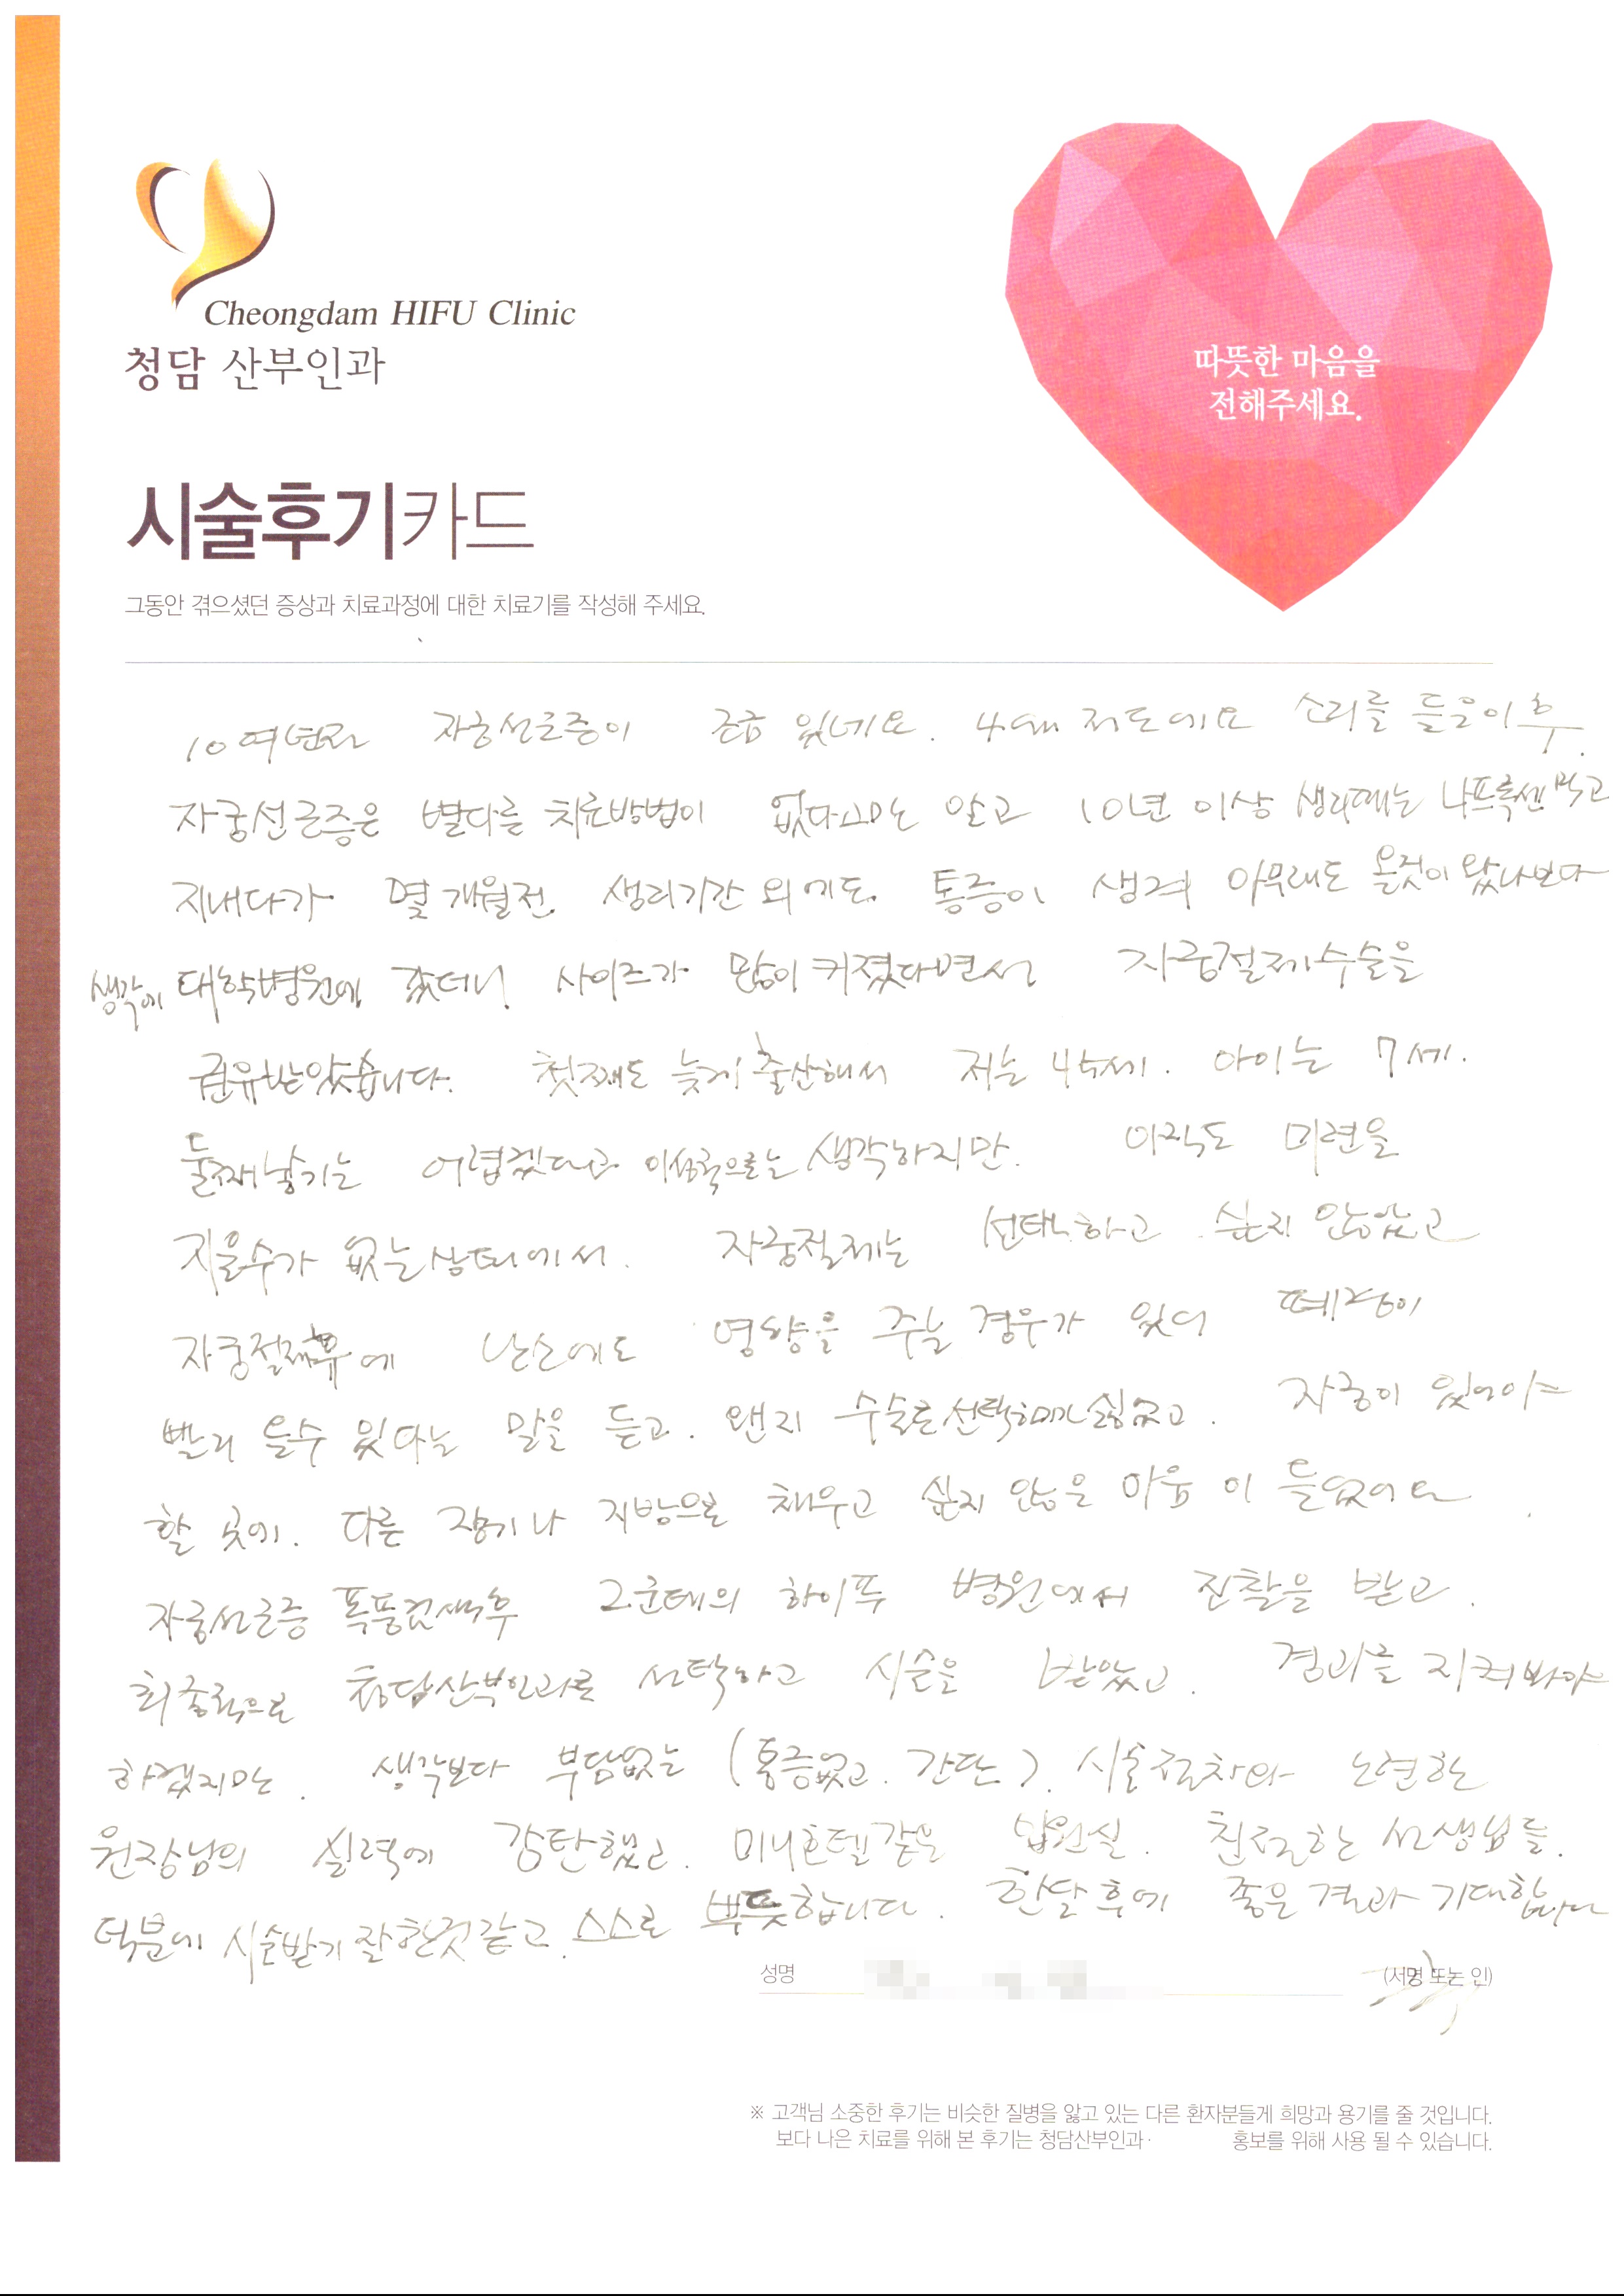 Cheongdam HIFU Clinic
청담 산부인과
따뜻한 마음을
전해주세요.
시술후기카드
그동안 겪으셨던 증상과 치료과정에 대한 치료기를 작성해 주세요.
10여년전 자궁선근증이 조금 있네요. 4cm 정도에요 소리를 들은이후.
자궁선근증은 별다른 치료방법이 없다고만 알고 10년 이상 생리때는 나프록센 먹고
지내다가 몇 개월전. 생리기간 외에도. 통증이 생겨 아무래도 올것이 왔나보다
생각에 대학병원에 갔더니 사이즈가 많이 커졌다면서 자궁절제수술을
권유받았습니다. 첫째도 늦게 출산해서 저는 45세. 아이는 7세.
둘째낳기는 어렵겠다고 이성적으로는 생각하지만. 아직도 미련을
지울수가 없는상태에서. 자궁절제는 선택하고 싶지 않았고
자궁절제후에 난소에도 영향을 주는 경우가 있어 폐경이
빨리 올수 있다는 말을 듣고. 왠지 수술은선택하기가싫었고. 자궁이 있어야
할 곳에. 다른 장기나 지방으로 채우고 싶지 않은 마음이 들었어요.
자궁선근증 폭풍검색후 2군데의 하이푸 병원에서 진찰을 받고.
최종적으로 청담산부인과를 선택하고 시술을 받았고. 경과를 지켜봐야
하겠지만. 생각보다 부담없는 (통증없고. 간단). 시술절차와 노련한
원장님의 실력에 감탄했고. 미니호텔같은 입원실. 친절한 선생님들.
덕분에 시술받기 잘한것같고. 스스로 뿌듯합니다. 한달후에 좋은결과 기대합니다
성명 (서명 또는 인)
※ 고객님 소중한 후기는 비슷한 질병을 앓고 있는 다른 환자분들게 희망과 용기를 줄 것입니다.
보다 나은 치료를 위해 본 후기는 청담산부인과· 홍보를 위해 사용 될 수 있습니다.